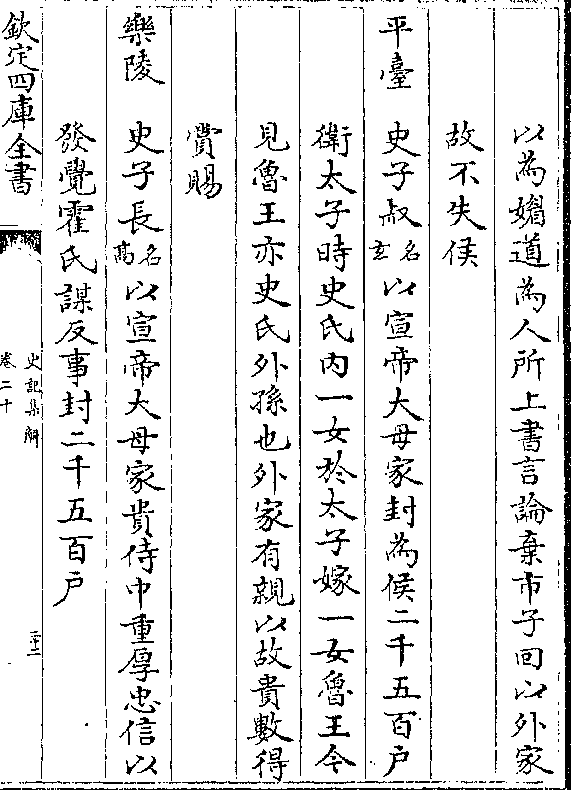 以為媚道為人所上書言論棄市子回以外家
故不失侯
平臺　史子叔名玄以宣帝大母家封為侯二千五百户
衛太子時史氏内一女於太子嫁一女魯王今
見魯王亦史氏外孫也外家有親以故貴數得
賞賜
樂陵　史子長名髙以宣帝大母家貴侍中重厚忠信以
發覺霍氏謀反事封二千五百户
欽定四庫全書
史記集解
卷二十
二十二